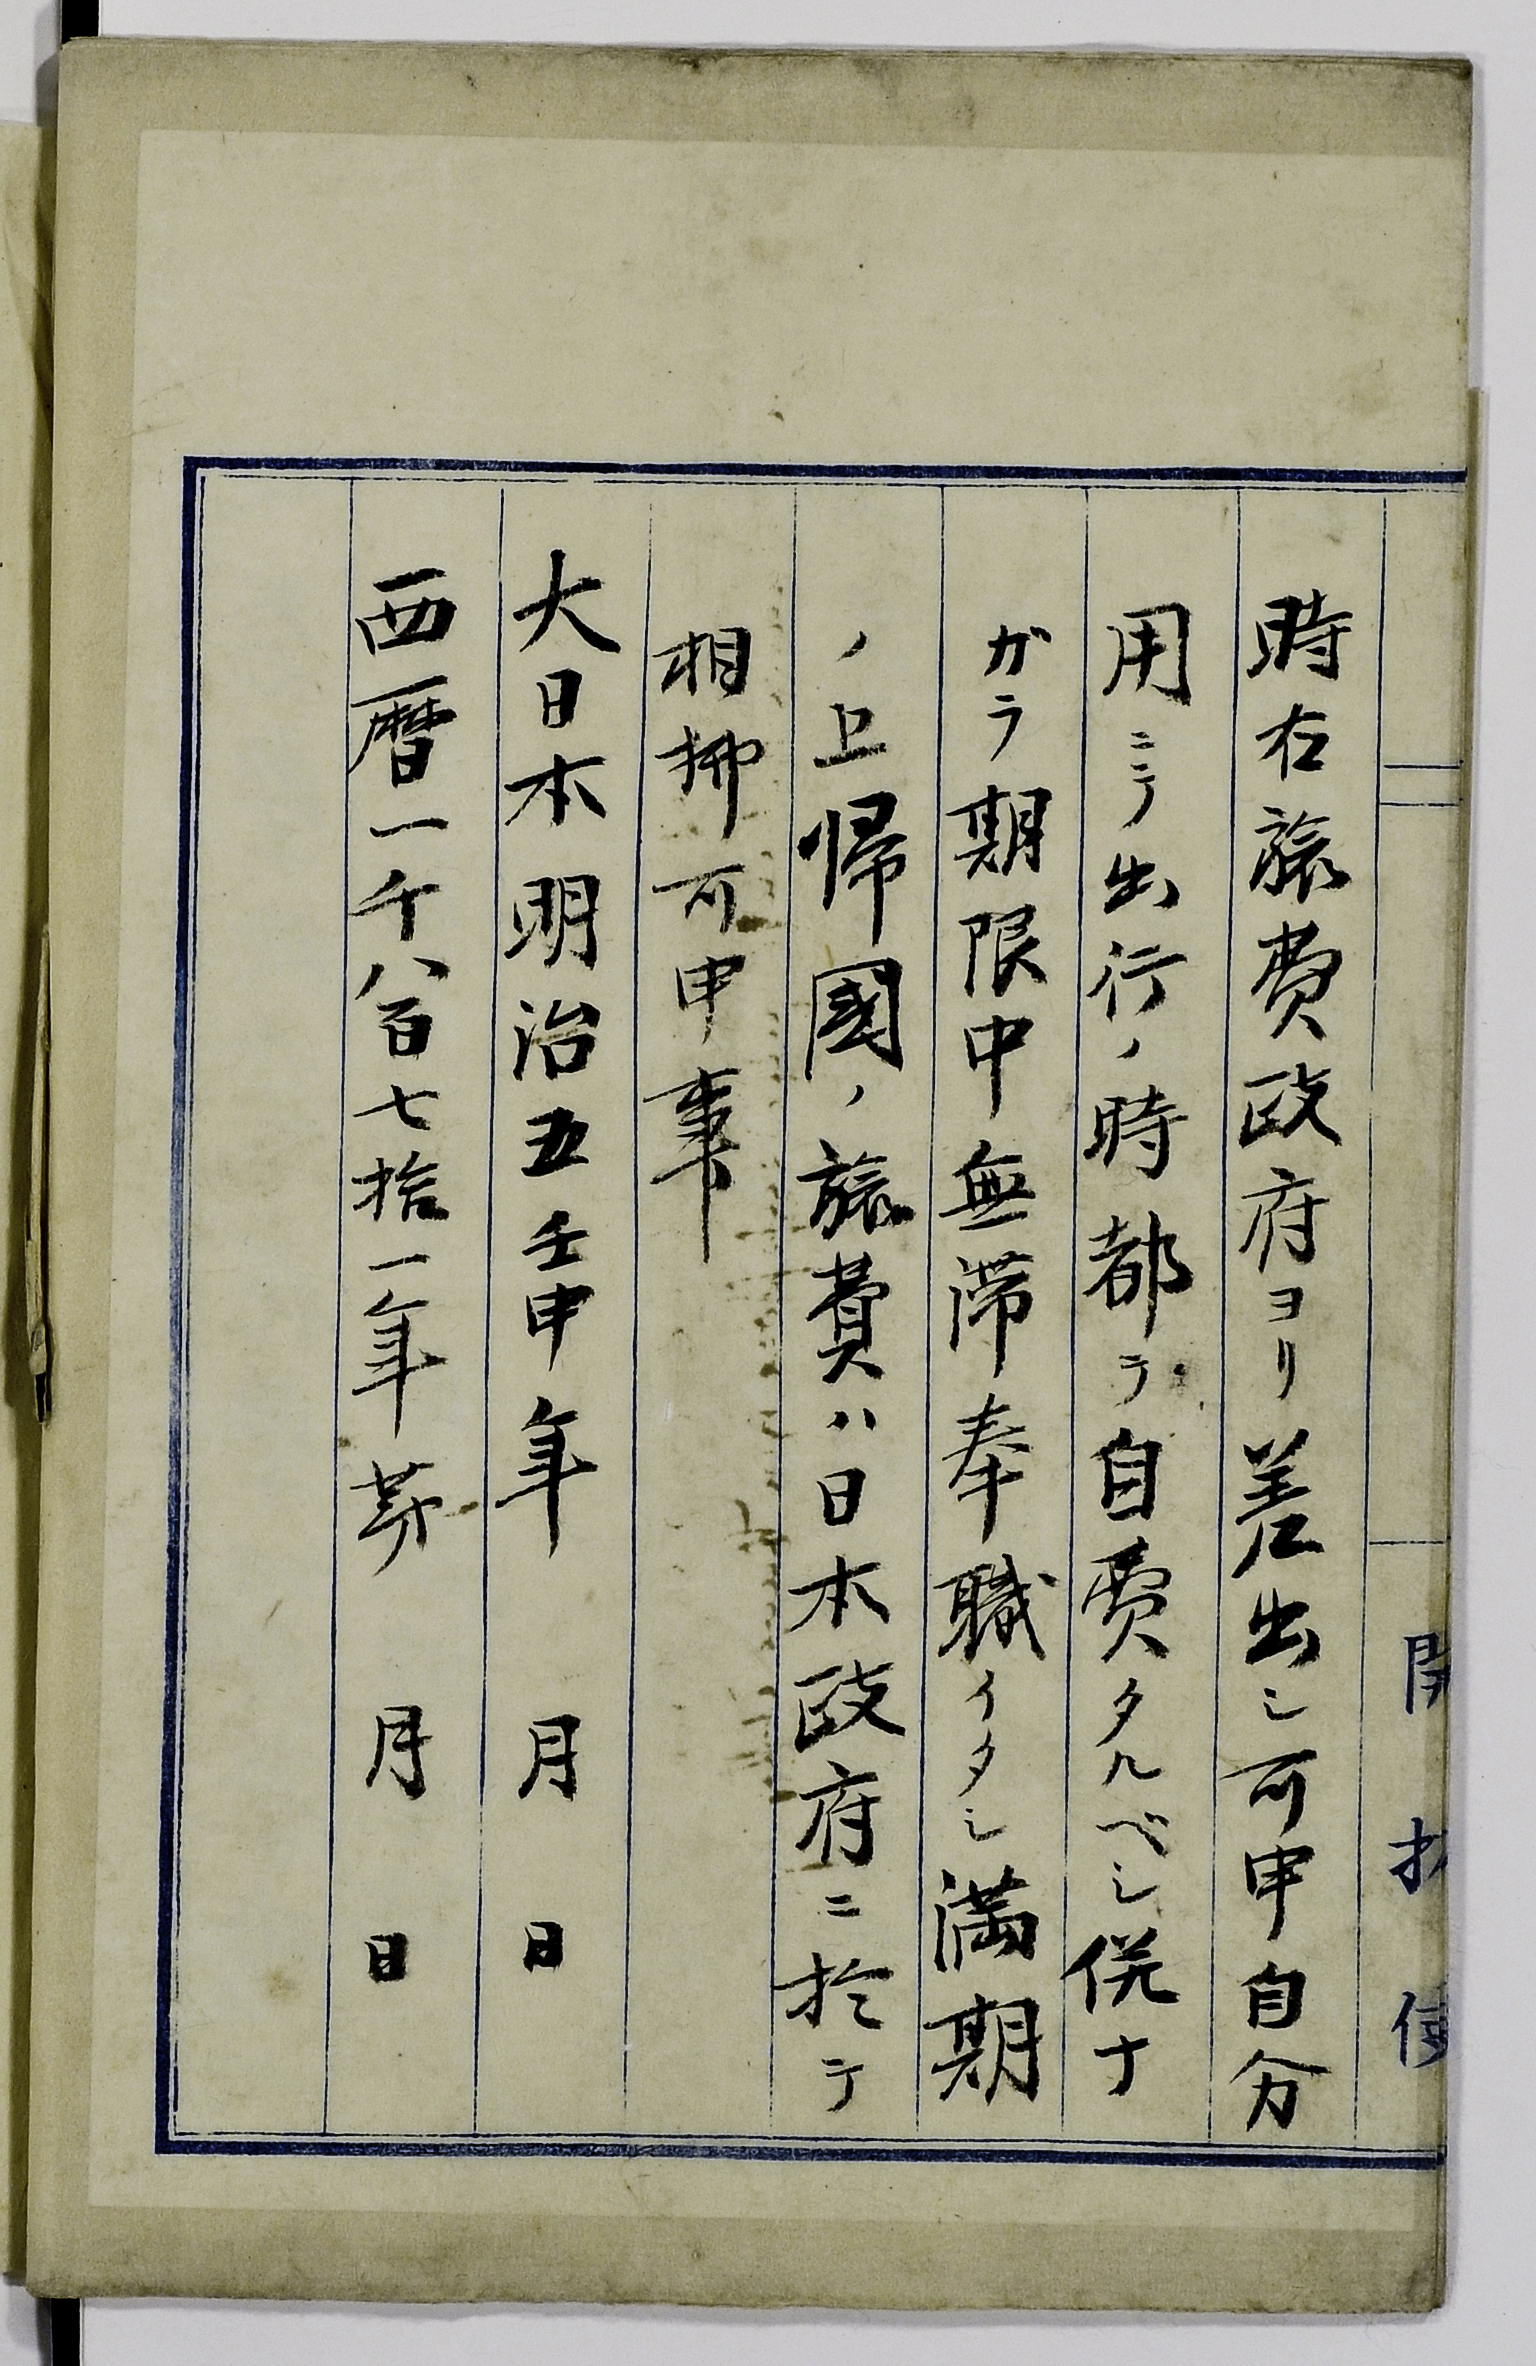 開拓使
時右旅費政府ヨリ差出シ可申自分
用ニテ出行ノ時都テ自費タルベシ併ナ
ガラ期限中無滞奉職イタシ満期
ノ上帰國ノ旅費ハ日本政府ニ於テ
相拂可申事
大日本明治五壬申年　月　日
西暦一千八百七拾一年第　月　日